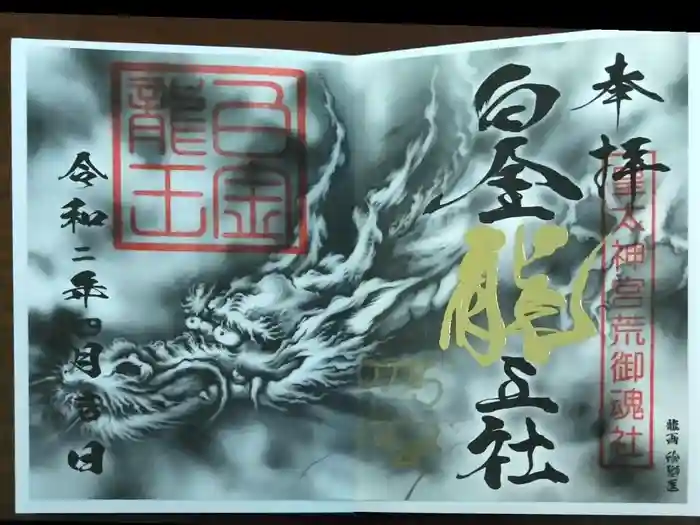 奉拝
太神宮荒御魂社
白金龍王社
白金龍王
令和二年四月吉日
龍画